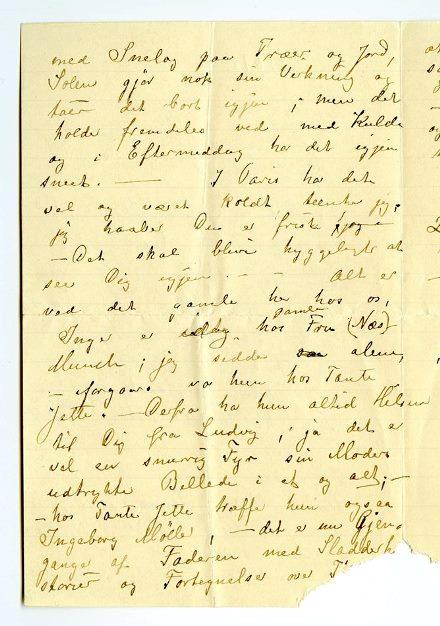 med Snelag paa Træer og Jord,
Solen gjør nok sin Virkning og
taer det bort igjen; men det
holder fremdeles ved med Kulde
og i Eftermiddag har det igjen
sneet. — I Paris har det
vel og været koldt tænker jeg,
jeg haaber Du er frisk
— Det skal blive hyggeligt at
see Dig igjen. — — Alt er
ved det gamle her hos os,
Inger er idag hos gamle Fru (Næs)
Munch; jeg sidder alene,
— forgaars var hun hos Tante
Jette. — Derfra har hun altid Hilsen
til Dig fra Ludvig; ja det er
vel en snurrig Fyr sin Moders
udtrykte Billede i et og alt; —
— hos Tante Jette træffer hun ogsaa
Ingeborg Møller, — det er nu Gjen-
ganger af Faderen med Sladder
storier og Fortegnelser over